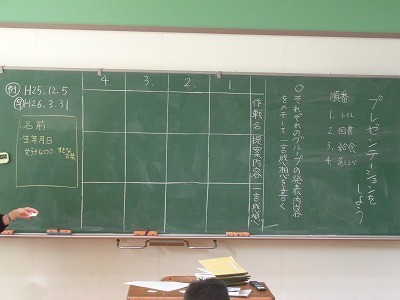 プレゼンテーションをしよう
順番
1. トイレ
2. 図書
3. 給食
4.
○それぞれのグループの発表内容
をメモして、一言感想を書く。
1. 2. 3. 4.
作戦名
提案内容
一言感想
例 H25.12.5
H26.3.31
名前
生年月日